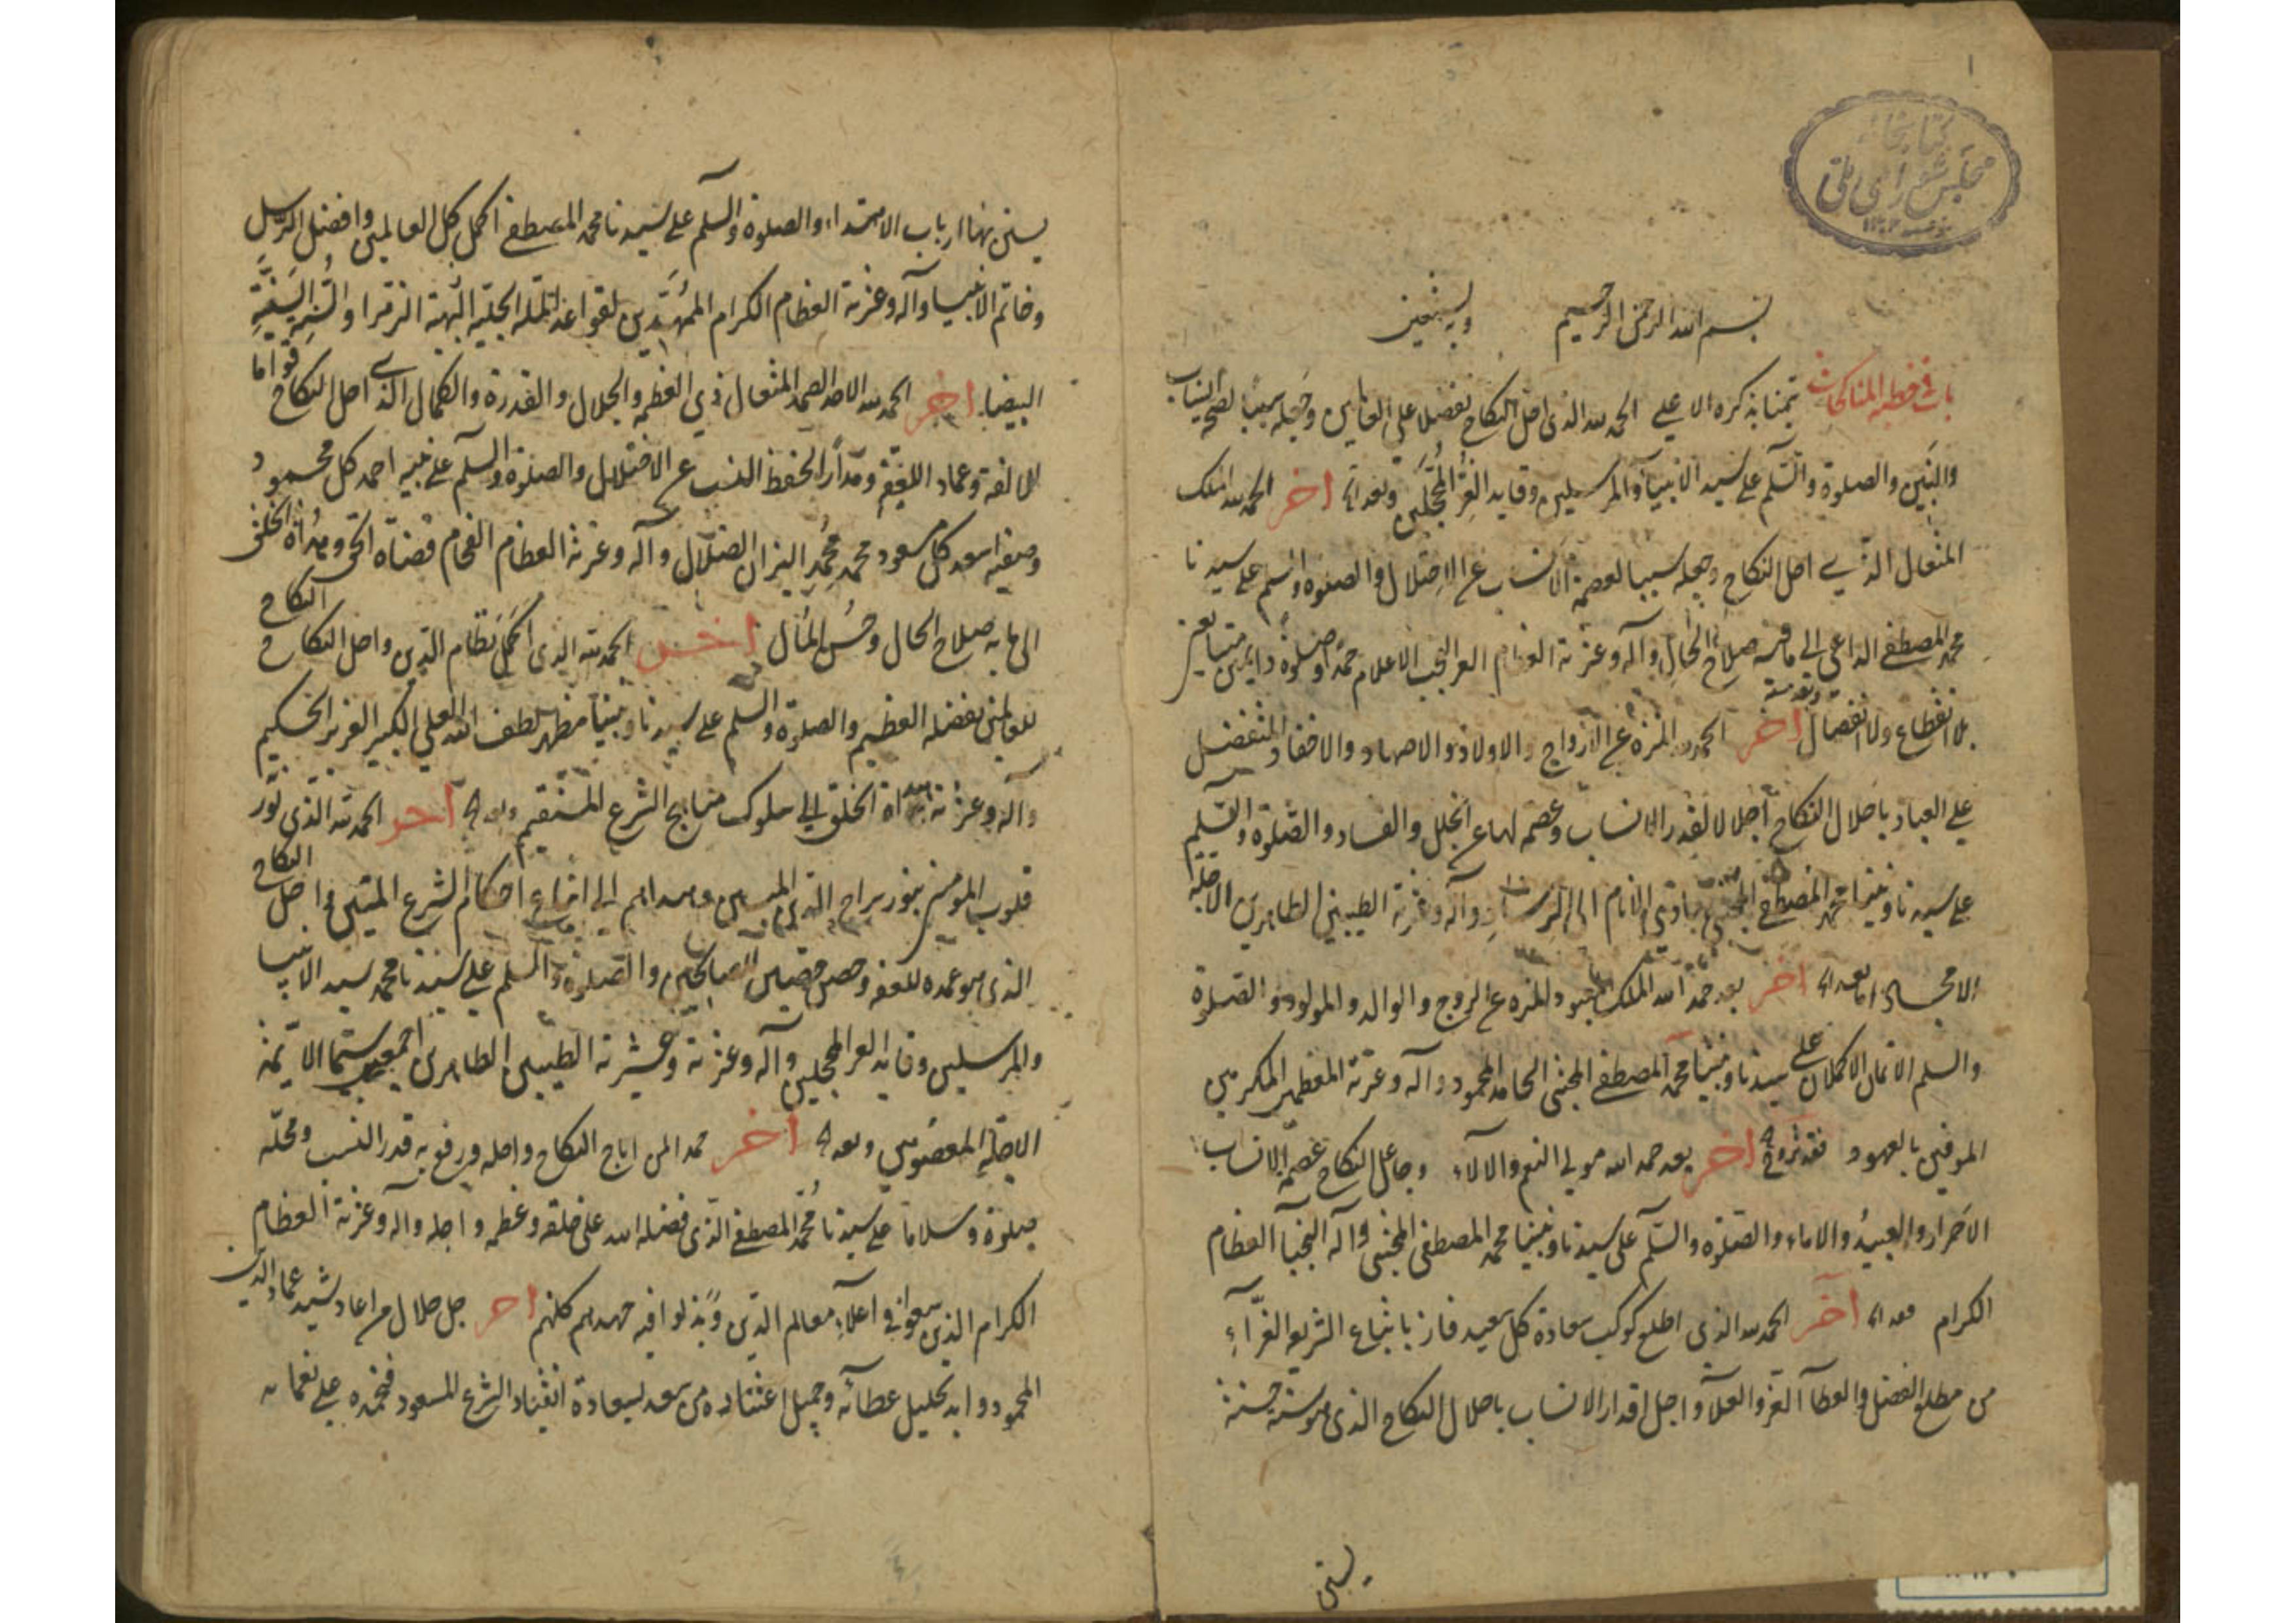 ۱
کتابخانه
مجلس شورای ملی
بسم الله الرحمن الرحیم وبه نستعین
باب فی خطبة المناکحات تیمنا بذکره الاعلی الحمد لله الذی احل النکاح تفضلا علی العالمین وجعله سببا لصحة انتساب
والبنین والصلوة والسلم علی سید الانبیآ والمرسلین وقاید الغر المحجلین وبعد اخر الحمد لله الملک
المتعال الذی احل النکاح وجعله سببا لعصمة الانساب عن الاختلال والصلوة والسلم علی سیدنا
محمد المصطفی الداعی الی ما فیه صلاح الحال وآله وعترته العظام الغر النجب الاعلام حمدا وصلوة دایمین متتابعین
بلا انقطاع ولا انفصال وبعد اخر الحمد لله المنزه عن الازواج والاولاد والاصهار والاحفاد المتفضل
علی العباد باحلال النکاح اجلالا لقدر الانساب وعصمة لها عن الخلل والفساد والصلوة والسلم
علی سیدنا ونبینا محمد المصطفی المجتبی هادی الانام الی الرشاد وآله وعترته الطیبین الطاهرین الاجلة
الامجاد اما بعد اخر بعد حمد الله الملک المعبود المنزه عن الزوج والوالد والمولود والصلوة
والسلم الاتمان الاکملان علی سیدنا ونبینا محمد المصطفی المجتبی الحامد المحمود وآله وعترته المعظمین المکرمین
الموفین بالعهود فقد تزوج اخر بعد حمد الله مولی النعم والآلاء وجاعل النکاح عصمة الانساب
الاحرار والعبید والاماء والصلوة والسلم علی سیدنا ونبینا محمد المصطفی المجتبی وآله النجبآ العظام
الکرام بعد اخر الحمد لله الذی اطلع کوکب سعادة کل سعید فاز باتباع الشریعة الغرآء
من مطلع الفضل والعطآ العز والعلآ واجل اقدار الانساب باحلال النکاح الذی هو سنة حسنة
یستن
یستن بها ارباب الاهتداء والصلوة والسلم علی سیدنا محمد المصطفی اکمل کل العالمین وافضل الرسل
وخاتم الانبیا وآله وعترته العظام الکرام الممهدین لقواعد الملة الجلیة البهیة الزهرا والسنیة
البیضا اخر الحمد لله الاحد الصمد المتعال ذی العظمة والجلال والقدرة والکمال الذی احل النکاح قواما
للالفة وعماد للعفة ومدارا لحفظ النسب عن الاختلال والصلوة والسلم علی نبیه احمد کل محمود
وصفیه اسعد کل مسعود محمد مخمد النیران الضلال وآله وعترته العظام الفخام قضاة الحق وهداة الخلق
الی ما به صلاح الحال وحسن المآل اخر الحمد لله الذی اکمل نظام الدین واحل النکاح
للعالمین بفضله العظیم والصلوة والسلم علی سیدنا ونبینا مظهر لطف الله العلی الکبیر العزیز الحکیم
وآله وعترته هداة الخلق الی سلوک مناهج الشرع المستقیم وبعد اخر الحمد لله الذی نور
قلوب المومنین بنور سراج الدین المبین وهداهم الی اتباع احکام الشرع المتین واحل النکاح
الذی هو عمدة للعفة وحصن حصین للصالحین والصلوة والسلم علی سیدنا محمد سید الانبیا
والمرسلین وقاید الغر المحجلین وآله وعترته وعشیرته الطیبین الطاهرین اجمعین سیما الائمة
الاجلة المعصومین وبعد اخر حمدا لمن اباح النکاح واحله ورفع به قدر النسب ومحله
صلوة وسلاما علی سیدنا محمد المصطفی الذی فضله الله علی خلقه وعظمه واجله وآله وعترته العظام
الکرام الذین سعوا فی اعلاء معالم الدین وبذلوا فیه جهدهم کلهم اخر جل جلال من اعاد شید عماد الدین
المحمود واید بجلیل عطائه وجمیل اعتنائه من سعد لسعادة انقیاد الشرع المسعود فنحمده علی نعمائه